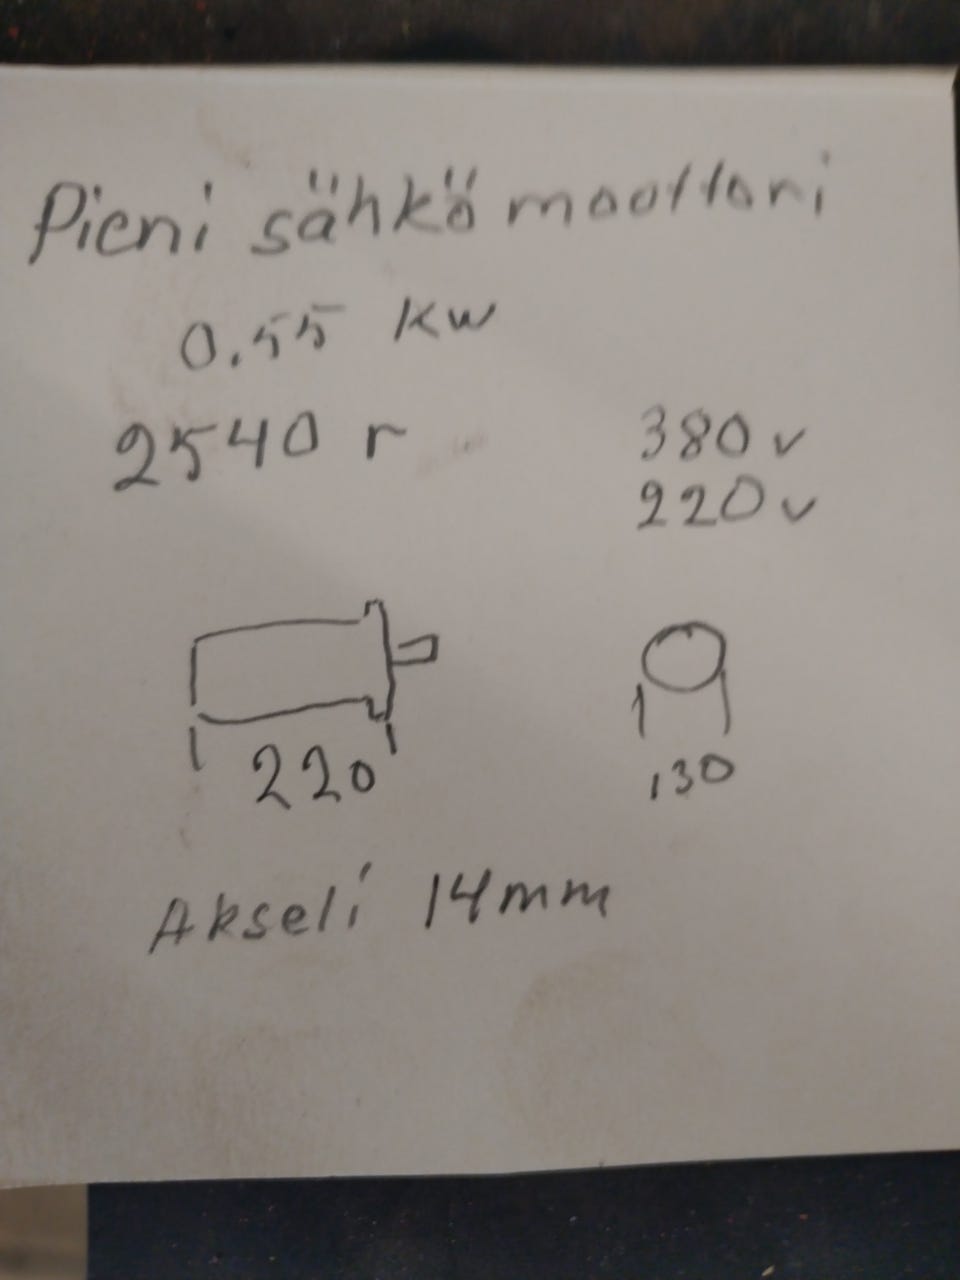 Pieni sähkö moottori
0.55 kw
2540 r
380 v
220 v
220
130
Akseli 14mm